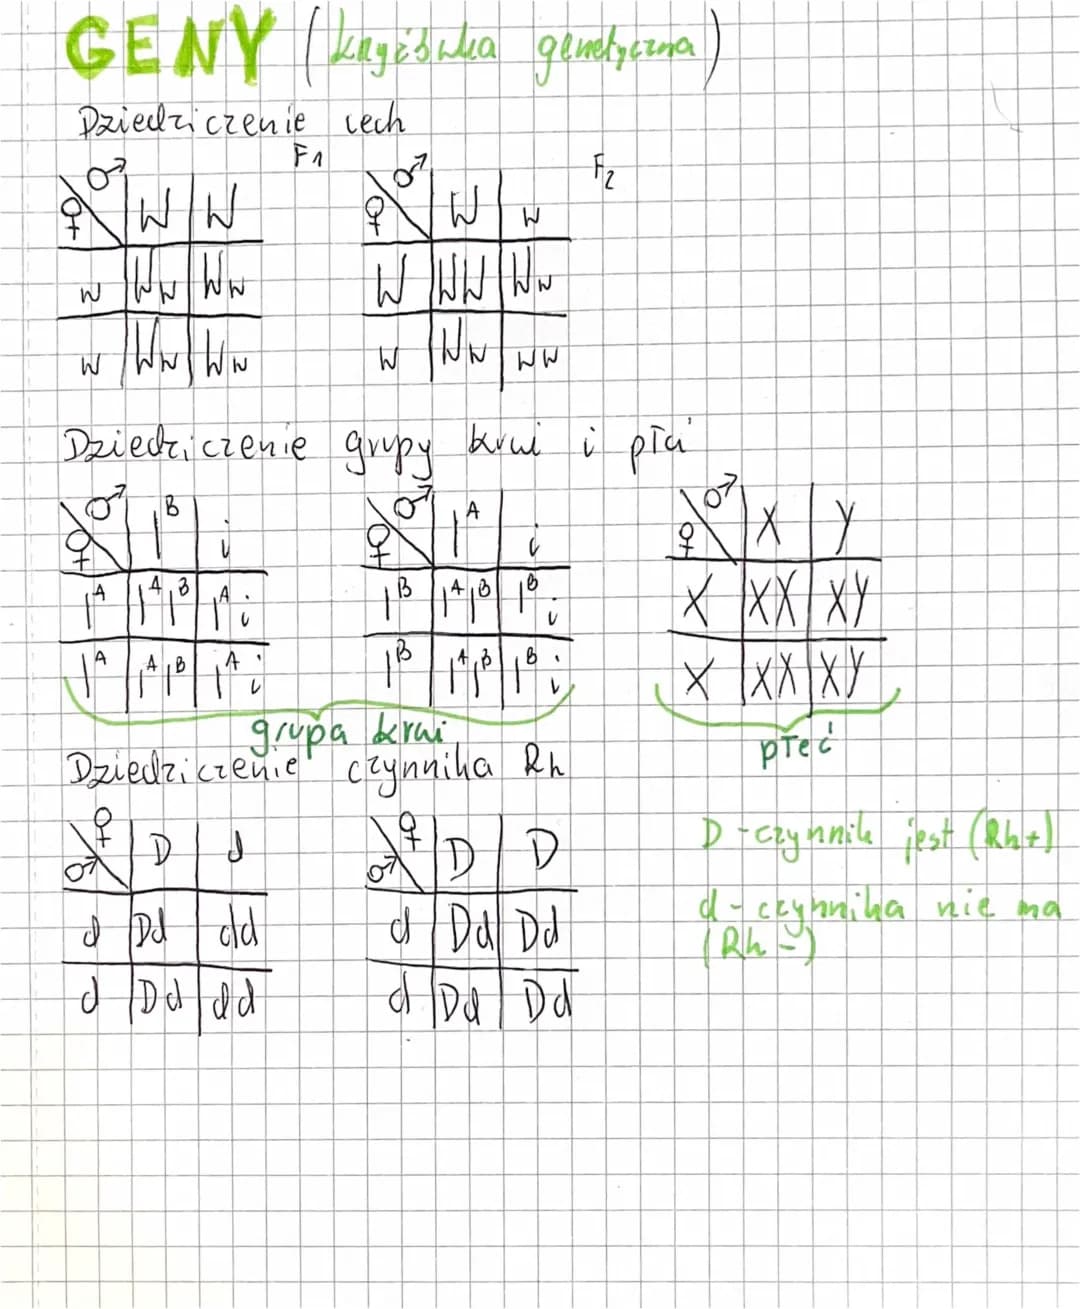 GENY (krzyżówka genetyczna)
Dziedziczenie cech
F1 F2
♀ ♂ W W ♀ ♂ W w
w Ww Ww W WW Ww
w Ww Ww w Ww ww
Dziedziczenie grupy krwi i płci
♀ ♂ I^B i ♀ ♂ I^A i ♀ ♂ X Y
I^A I^A I^B I^A i I^B I^A I^B I^B i X XX XY
I^A I^A I^B I^A i I^B I^A I^B I^B i X XX XY
grupa krwi płeć
Dziedziczenie czynnika Rh
♂ ♀ D d ♂ ♀ D D
d Dd dd d Dd Dd
d Dd dd d Dd Dd
D - czynnik jest (Rh+)
d - czynnika nie ma
(Rh -)